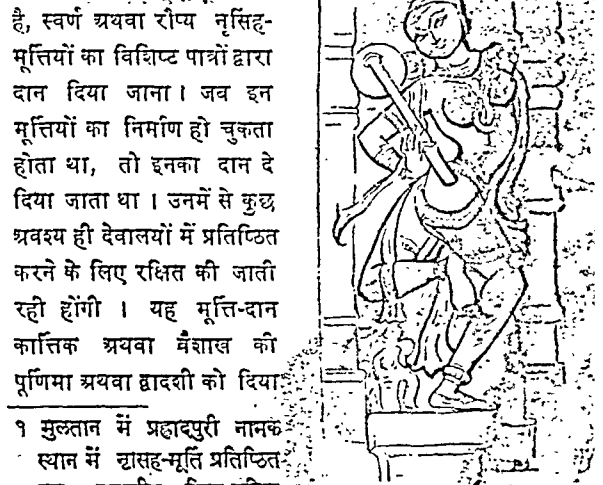 है, स्वर्ण अथवा रौप्य नृसिंह-
मूर्त्तियों का विशिष्ट पात्रों द्वारा
दान दिया जाना। जब इन
मूर्त्तियों का निर्माण हो चुकता
होता था, तो इनका दान दे
दिया जाता था। उनमें से कुछ
अवश्य ही देवालयों में प्रतिष्ठित
करने के लिए रक्षित की जाती
रही होंगी। यह मूर्त्ति-दान
कार्त्तिक अथवा वैशाख की
पूर्णिमा अथवा द्वादशी को दिया
१ मुलतान में प्रह्लादपुरी नामक
स्थान में नृसिंह-मूर्ति प्रतिष्ठित